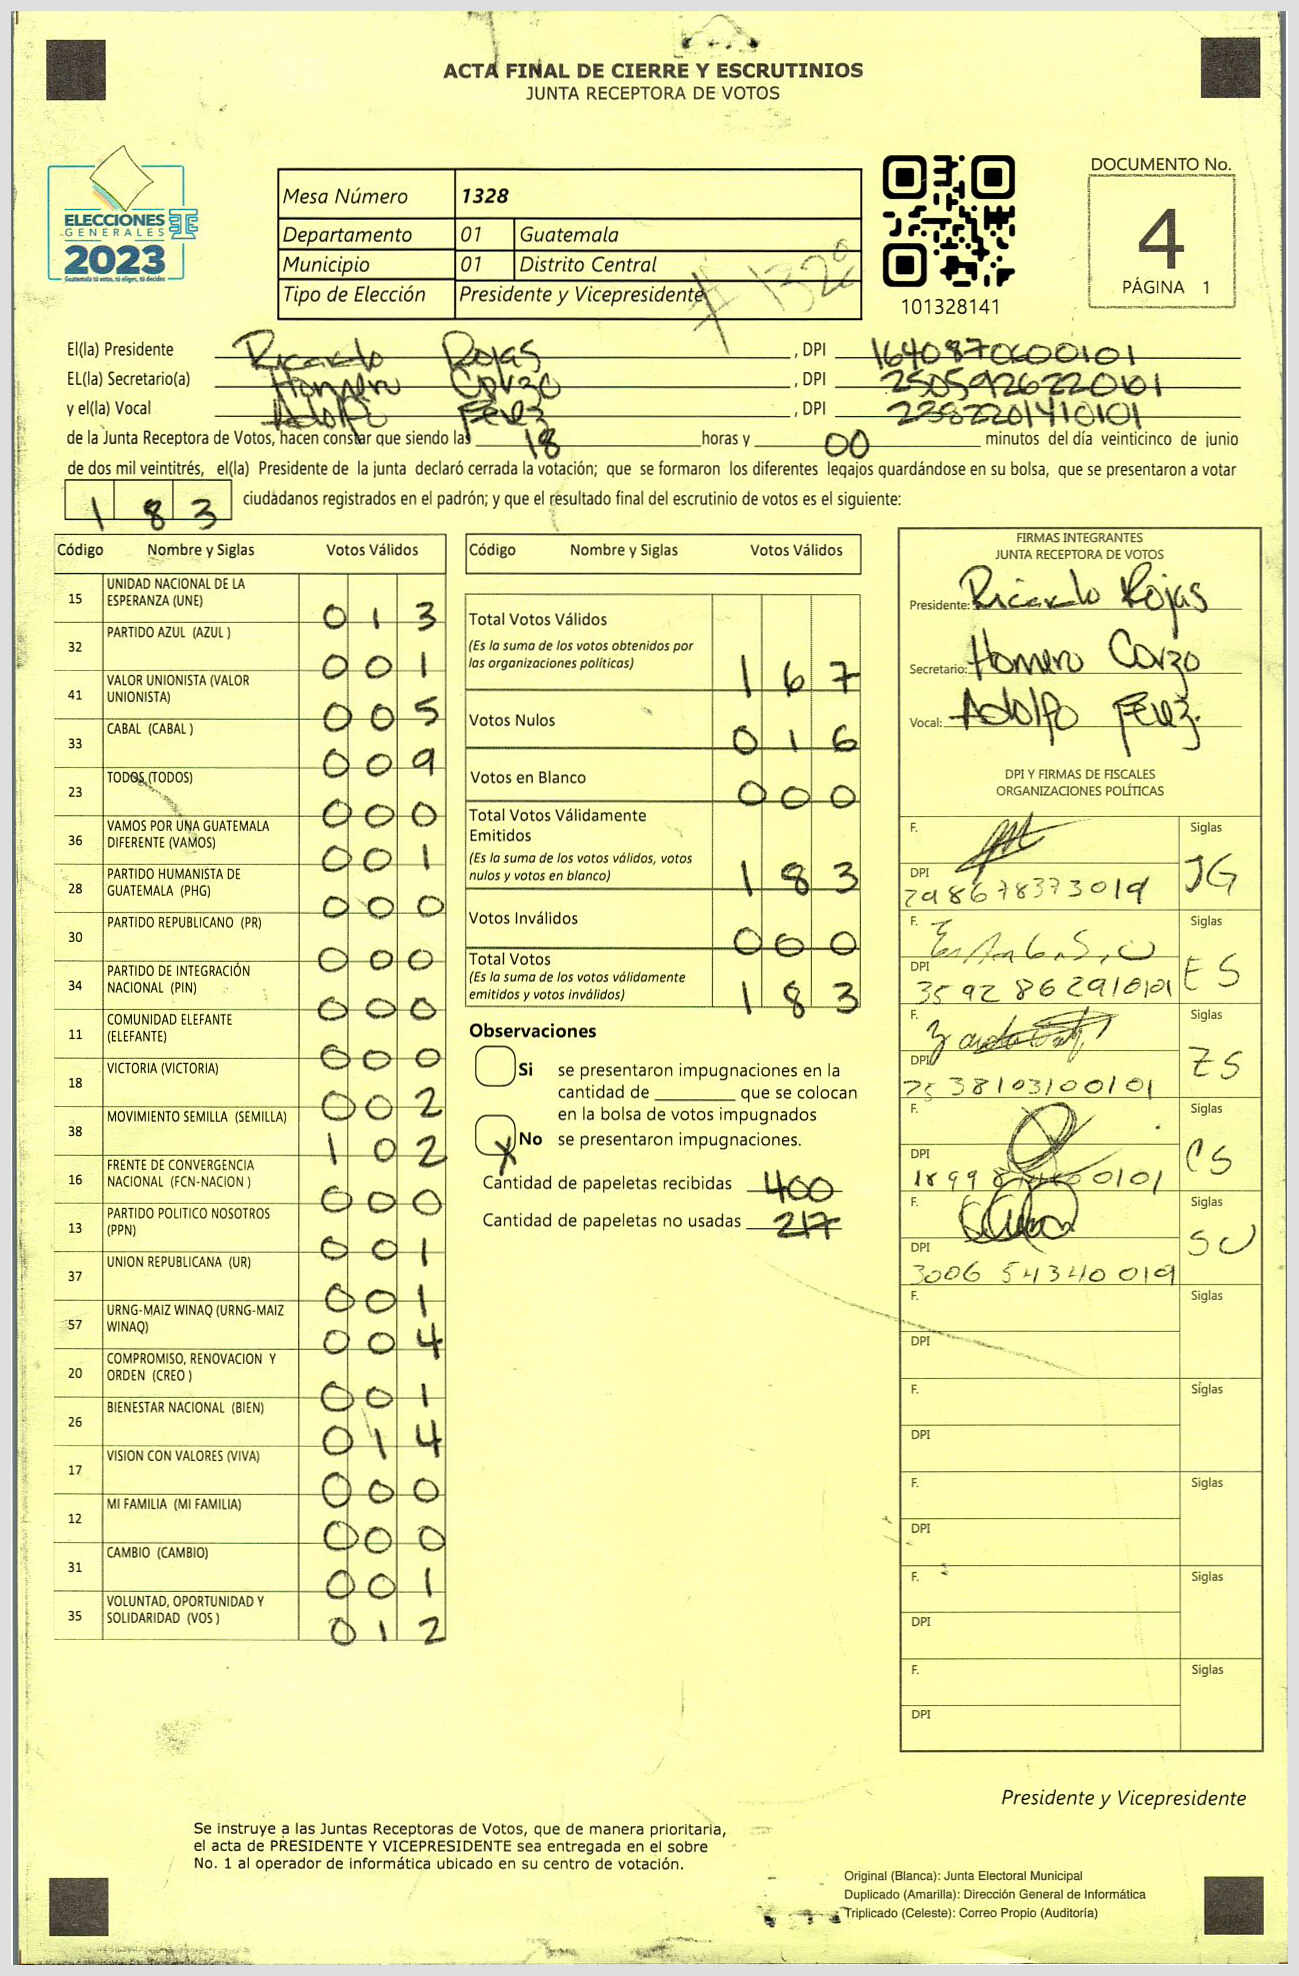 ACTA FINAL DE CIERRE Y ESCRUTINIOS
JUNTA RECEPTORA DE VOTOS
ELECCIONES
GENERALES
2023
Guatemala tú votas, tú eliges, tú decides
Mesa Número 1328
Departamento 01 Guatemala
Municipio 01 Distrito Central
Tipo de Elección Presidente y Vicepresidente
101328141
DOCUMENTO No.
4
PÁGINA 1
El(la) Presidente Ricardo Rojas , DPI 1640870600101
EL(la) Secretario(a) Homero Corzo , DPI 2505926220101
y el(la) Vocal Adolfo , DPI 2382201410101
de la Junta Receptora de Votos, hacen constar que siendo las 18 horas y 00 minutos del día veinticinco de junio
de dos mil veintitrés, el(la) Presidente de la junta declaró cerrada la votación; que se formaron los diferentes legajos guardándose en su bolsa, que se presentaron a votar
183 ciudadanos registrados en el padrón; y que el resultado final del escrutinio de votos es el siguiente:
Código Nombre y Siglas Votos Válidos
15 UNIDAD NACIONAL DE LA ESPERANZA (UNE) 013
32 PARTIDO AZUL (AZUL ) 001
41 VALOR UNIONISTA (VALOR UNIONISTA) 005
33 CABAL (CABAL ) 009
23 TODOS (TODOS) 000
36 VAMOS POR UNA GUATEMALA DIFERENTE (VAMOS) 001
28 PARTIDO HUMANISTA DE GUATEMALA (PHG) 000
30 PARTIDO REPUBLICANO (PR) 000
34 PARTIDO DE INTEGRACIÓN NACIONAL (PIN) 000
11 COMUNIDAD ELEFANTE (ELEFANTE) 000
18 VICTORIA (VICTORIA) 002
38 MOVIMIENTO SEMILLA (SEMILLA) 102
16 FRENTE DE CONVERGENCIA NACIONAL (FCN-NACION ) 000
13 PARTIDO POLITICO NOSOTROS (PPN) 001
37 UNION REPUBLICANA (UR) 001
57 URNG-MAIZ WINAQ (URNG-MAIZ WINAQ) 004
20 COMPROMISO, RENOVACION Y ORDEN (CREO ) 001
26 BIENESTAR NACIONAL (BIEN) 014
17 VISION CON VALORES (VIVA) 000
12 MI FAMILIA (MI FAMILIA) 000
31 CAMBIO (CAMBIO) 001
35 VOLUNTAD, OPORTUNIDAD Y SOLIDARIDAD (VOS ) 012
Código Nombre y Siglas Votos Válidos
Total Votos Válidos 167
(Es la suma de los votos obtenidos por
las organizaciones políticas)
Votos Nulos 016
Votos en Blanco 000
Total Votos Válidamente
Emitidos 183
(Es la suma de los votos válidos, votos
nulos y votos en blanco)
Votos Inválidos 000
Total Votos 183
(Es la suma de los votos válidamente
emitidos y votos inválidos)
Observaciones
Si se presentaron impugnaciones en la
cantidad de ________ que se colocan
en la bolsa de votos impugnados
X No se presentaron impugnaciones.
Cantidad de papeletas recibidas 400
Cantidad de papeletas no usadas 217
FIRMAS INTEGRANTES
JUNTA RECEPTORA DE VOTOS
Presidente: Ricardo Rojas
Secretario: Homero Corzo
Vocal: Adolfo
DPI Y FIRMAS DE FISCALES
ORGANIZACIONES POLÍTICAS
F. Siglas JG
DPI 298678373019
F. Siglas ES
DPI 3592862910101
F. Siglas ZS
DPI 2538103100101
F. Siglas CS
DPI
F. Siglas SU
DPI 300654340019
F. Siglas
DPI
F. Siglas
DPI
F. Siglas
DPI
F. Siglas
DPI
F. Siglas
DPI
Presidente y Vicepresidente
Se instruye a las Juntas Receptoras de Votos, que de manera prioritaria,
el acta de PRESIDENTE Y VICEPRESIDENTE sea entregada en el sobre
No. 1 al operador de informática ubicado en su centro de votación.
Original (Blanca): Junta Electoral Municipal
Duplicado (Amarilla): Dirección General de Informática
Triplicado (Celeste): Correo Propio (Auditoría)